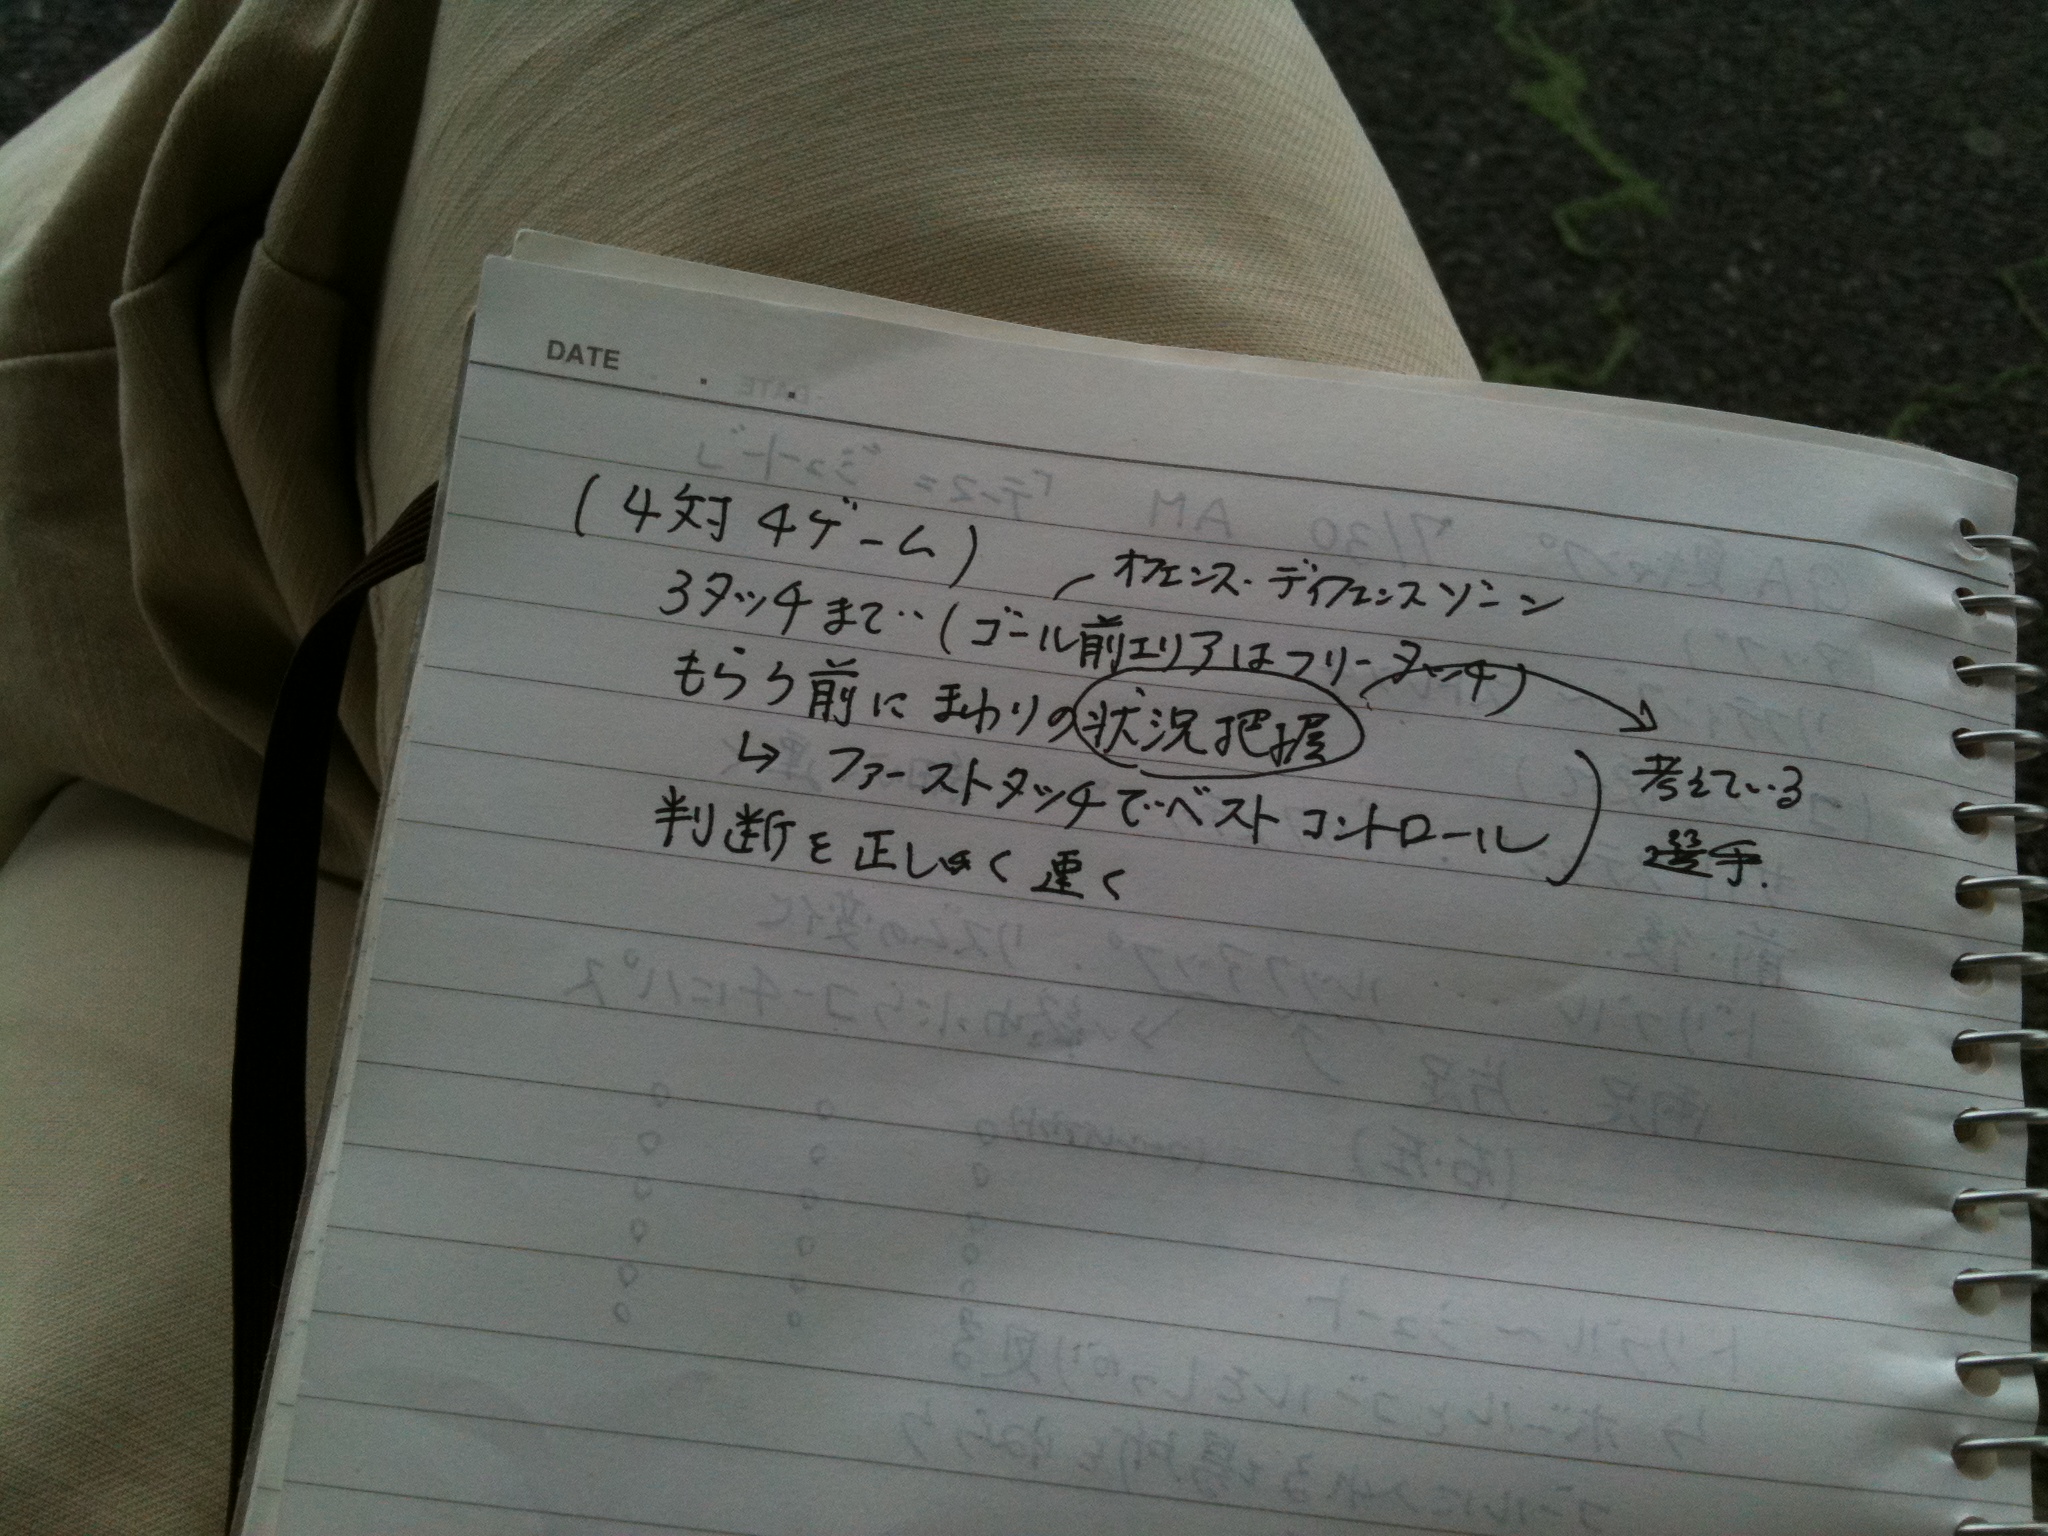 DATE . .
(4対4ゲーム)
オフェンス・ディフェンスゾーン
3タッチまで‥(ゴール前エリアはフリータッチ)
もらう前にまわりの状況把握
↳ ファーストタッチでベストコントロール
判断を正しく速く
考えている
選手.